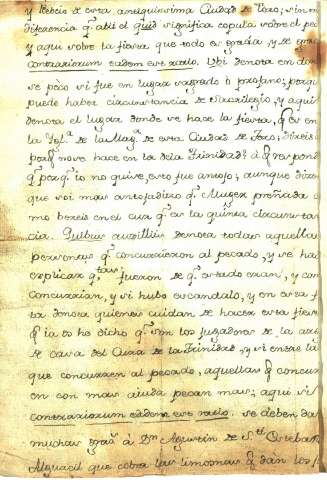 y Bebeis de esta antiquissima Ciudad de Toro; sin m
diferencia q.e alli el quid significa copula sobre el pe
y aqui sobre la fiesta que todo es gracia y se gra
contrariorum eadem est ratio. Ubi denota en don
se pecò si fue en lugar sagrado ò profano; porq
puede haber circunstancia de Sacrilegio, y aqui
denota el lugar donde se hace la fiesta, q.e es en
la Ygl.a de la Mag.a de esta Ciudad de Toro; direis
porq no se hace en la de la Trinidad? à q respond
q.e porq.e io no quise, esto fue antojo; aunque dize
que soi mas antojadizo q.e Muger preñada
mo bereis en el cur q.e es la quinta circunstan
cia. Quibus auxilliis denota todas aquellas
personas q.e concurrieron al pecado, y se ha
explicar q.tas fueron de q.e estado eran, y com
concurrian, y si hubo escandalo, y en esta f
ta denota quienes cuidan de hacer esta fies
q.e ia os he dicho q.e son los jugadores de la
de casa del Cura de la Trinidad, y si entre la
que concurren al pecado, aquellas q concur
en con mas aiuda pecan mas; aqui si
contrariorum eadem est ratio. se deben da
muchas gra.s à D.n Agustin de S.tt Esteban
Alguacil que cobra las limosnas q dan los